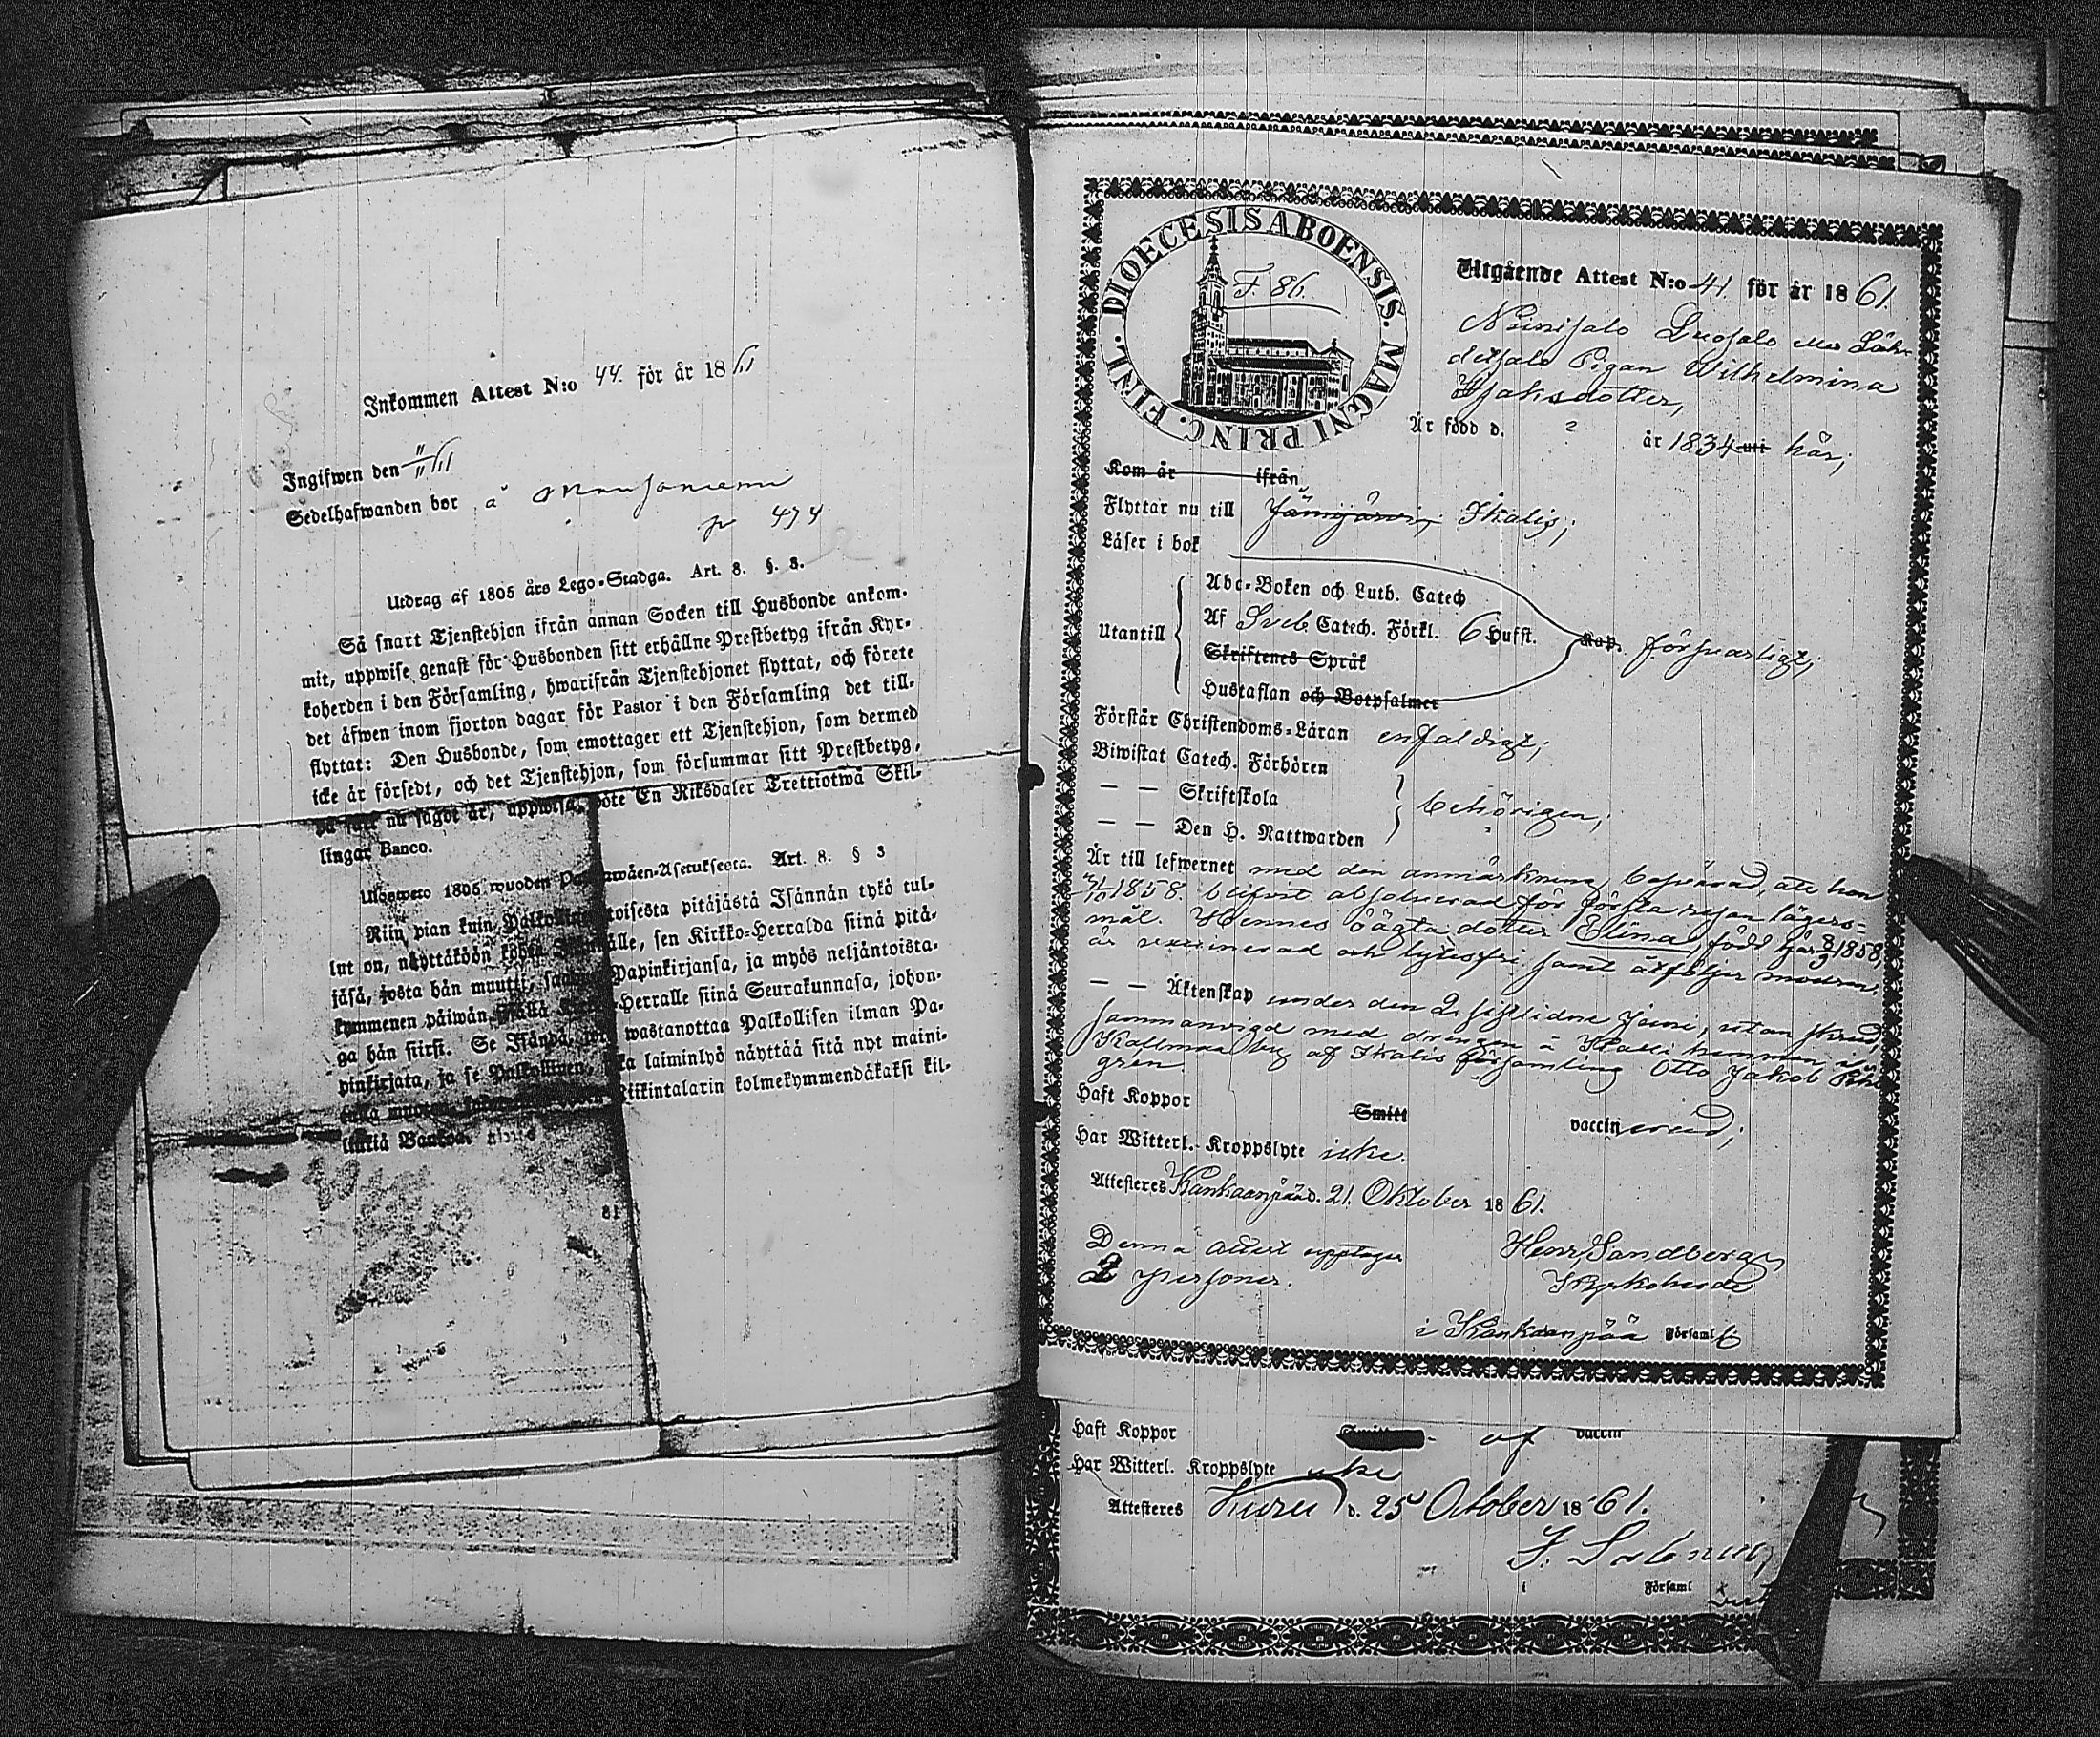 Inkommen Attest N:o 44. för år 1861
Ingifwen den 11/11 61
Sedelhafwanden bor å
p 474
Utdrag af 1805 års Lego-Stadga. Art. 8. §. 3.
Så snart Tjenstehjon ifrån annan Socken till Husbonde ankom-
mit, uppwise genast för Husbonden sitt erhållne Prestbetyg ifrån Kyr-
koherden i den Församling, hwarifrån Tjenstehjonet flyttat, och förete
det äfwen inom fjorton dagar för Pastor i den Församling det till-
flyttat: Den Husbonde, som emottager ett Tjenstehjon, som dermed
icke är försedt, och det Tjenstehjon, som försummar sitt Prestbetyg,
på sätt nu sagdt är, uppwisa, böte En Riksdaler Trettiotwå Skil-
lingar Banco.
Ulosweto 1805 wuoden Asetuksesta. Art. 8. § 3
Niin pian kuin Palkollinen toisesta pitäjästä Isännän tykö tul-
lut on, näyttäköön sen Kirkko-Herralda siinä pitä-
jäsä, josta hän muutti, Papinkirjansa, ja myös neljäntoista-
kymmenen päiwän Herralle siinä Seurakunnasa, johon-
ga hän siirsi. Se Isändä, wastanottaa Palkollisen ilman Pa-
pinkirjata, ja se Palkollinen, laiminlyö näyttää sitä nyt maini-
Riikintalarin kolmekymmendäkaksi kil-
Banco.
DIOECESIS ABOENSIS. MAGNI PRINC. FINL.
F. 86.
Utgående Attest N:o 41. för år 1861.
Niinisalo Luosalo
Pigan Wilhelmina
Isaksdotter,
Är född d. ? år 1834 uti här;
Kom år ifrån
Flyttar nu till Jämijärvi, Ikalis;
Läser i bok
Abc-Boken och Luth. Catech
Utantill Af Sveb. Catech. Förkl. 6 Hufst. Kap. försvarligt;
Skriftenes Språk
Hustaflan och Botpsalmer
Förstår Christendoms-Läran enfaldigt;
Biwistat Catech. Förhören
— — Skriftskola behörigen;
— — Den H. Nattwarden
Är till lefwernet med den anmärkning att hon
1858. blifvit absolverad för första resan lägers-
mål. Hennes oägta dotter Elina, född här 8/3 1858,
är vaccinerad och lytesfri samt åtföljer modren.
— — Äktenskap under den 2 sistlidne Juni, utan skrud,
sammanvigd med drengen å hemman i
af Ikalis församling Otto Jakob
gren.
Haft Koppor Smitt vaccinerad;
Har Witterl. Kroppslyte icke.
Attesteres Kankaanpää d. 21. Oktober 1861.
Denna attest upptager
2 personer.
Henr. Sandberg
Kyrkoherde
i Kankaanpää Församl
Haft Koppor af vaccin
Har Witterl. Kroppslyte icke
Attesteres Kuru d. 25 October 1861.
i Församl